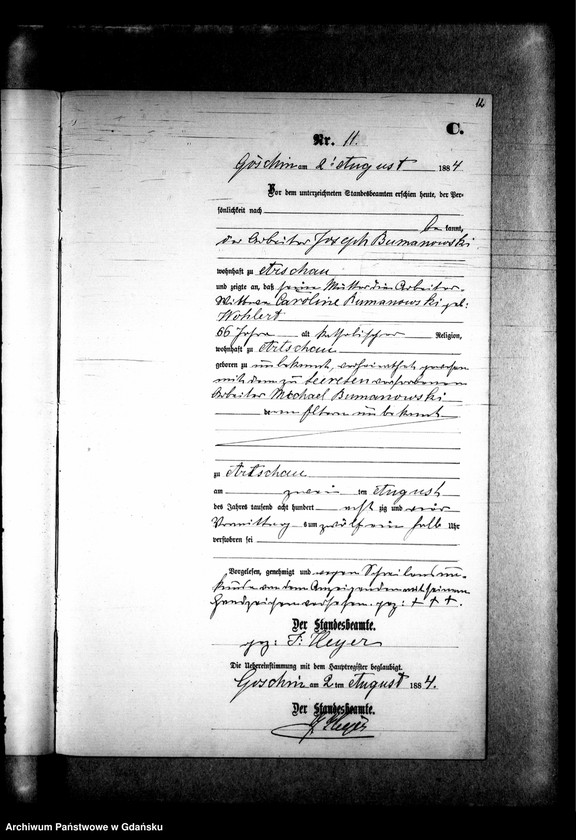 11
C.
Nr. 11.
Göschin am 2t August 1884
Vor dem unterzeichneten Standesbeamten erschien heute, der Per-
sönlichkeit nach
be kannt,
der Arbeiter Joseph Bumanowski
wohnhaft zu Artschau
und zeigte an, daß seine Mutter die Arbeiter-
Wittwe Caroline Bumanowski geb:
Wohlert
66 Jahre alt katholischer Religion,
wohnhaft zu Artschau
geboren zu unbekannt, verheirathet gewesen
mit dem zu verstorbenen
Arbeiter Michael Bumanowski
deren Eltern unbekannt
zu Artschau
am zwein ten August
des Jahres tausend acht hundert acht zig und vier
Vormittag s um zwölf ein halb Uhr
verstorben sei
Vorgelesen, genehmigt und wegen Schreibens un-
kunde von dem Anzeigenden mit seinem
Handzeichen versehen. gez: + + +.
Der Standesbeamte.
gez: F. Heyer
Die Uebereinstimmung mit dem Hauptregister beglaubigt.
Göschin am 2 ten August 1884.
Der Standesbeamte.
F. Heyer
Archiwum Państwowe w Gdańsku